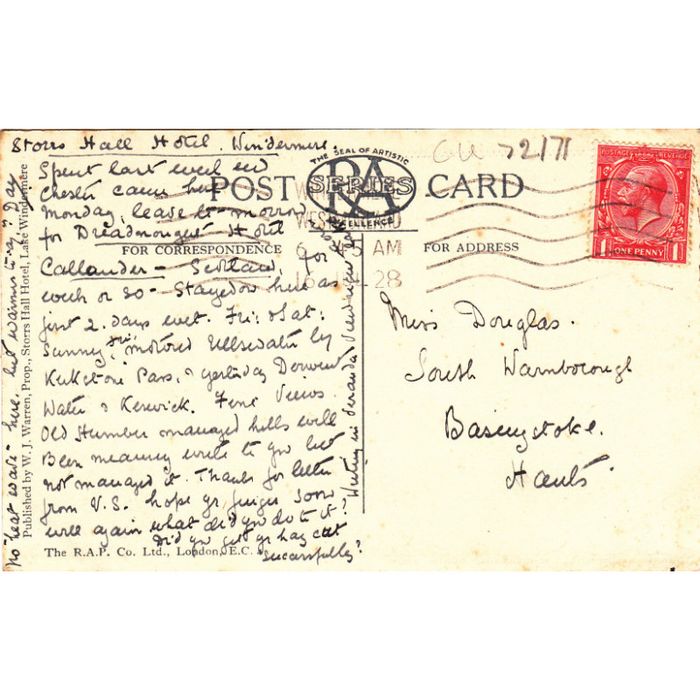 Storrs Hall Hotel. Windermere.
Spent last week end
Chester came here
Monday, leave to-morrow
for Dreadnought Hotel
Callander - Scotland, for a
week or so - Stayed on here as
first 2 days wet. Fri: & Sat:
Sunny, Fri: motored Ullswater by
Kirkstone Pass, & yesterday Derwent
Water & Keswick. Fine Views.
Old Humber managed hills well
Been meaning write to you but
not managed it. Thanks for letter
from V.S. hope yr finger soon
well again what did you do to it?
Did you get yr hay cut
successfully?
No heat wave here. but warmer to-day
Writing in Veranda
POST CARD
THE SEAL OF ARTISTIC
EXCELLENCE
RA
SERIES
FOR CORRESPONDENCE
FOR ADDRESS
AM
28
GU 72171
POSTAGE REVENUE
ONE PENNY
1 1
Miss Douglas.
South Warnborough
Basingstoke.
Hants.
Published by W. J. Warren, Prop., Storrs Hall Hotel, Lake Windermere
The R.A.P. Co. Ltd., London, E.C.